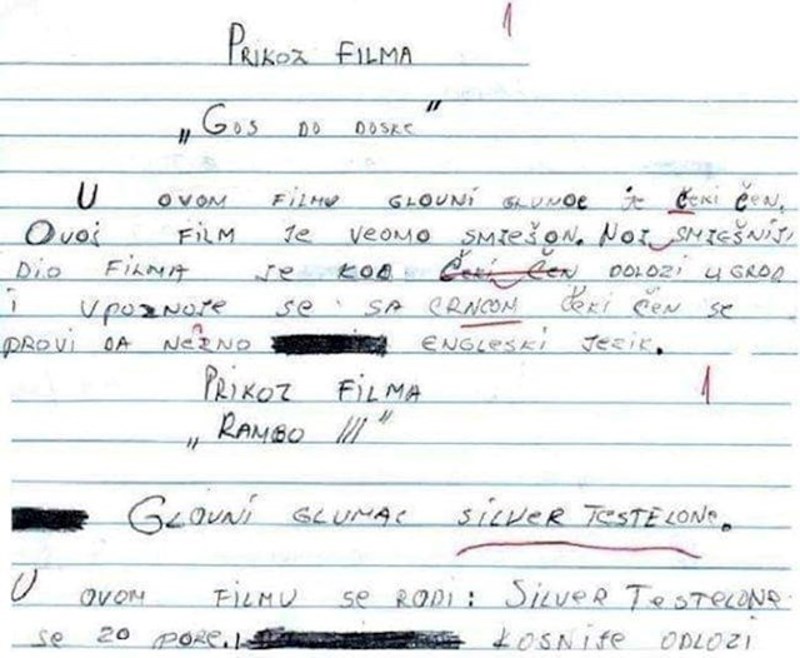 1
PRIKOZ FILMA
„GOS DO DOSKE"
U OVOM FILMU GLOVNI GLUMOC je ČEKI ČEN.
OVOJ FILM JE VEOMO SMIEŠON. NOJ SMIEŠNIJI
DIO FILMA JE KOD ČEKI ČEN DOLOZI U GROD
i UPOZNOJE SE SA CRNCOM ČEKI ČEN SE
PROVI DA NEZNO ENGLESKI JEZIK.
PRIKOZ FILMA 1
„RAMBO III"
GLOVNI GLUMAC SILVER TESTELONE.
U OVOM FILMU SE RODI: SILVER TESTELONE
SE 20 PORE. KOSNIJE ODLOZI